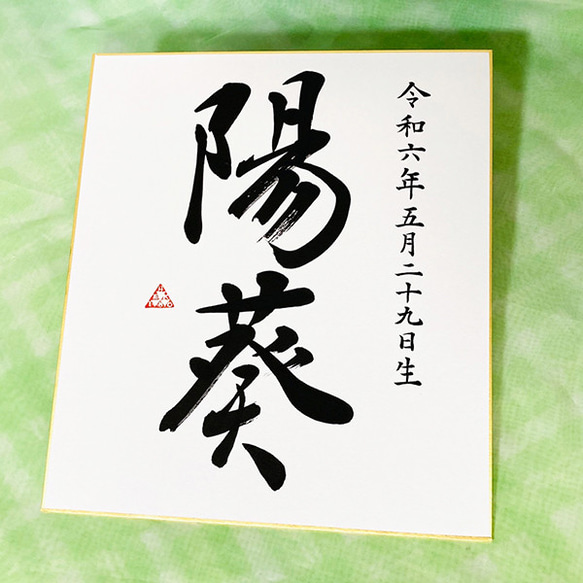 令和六年五月二十九日生
陽葵